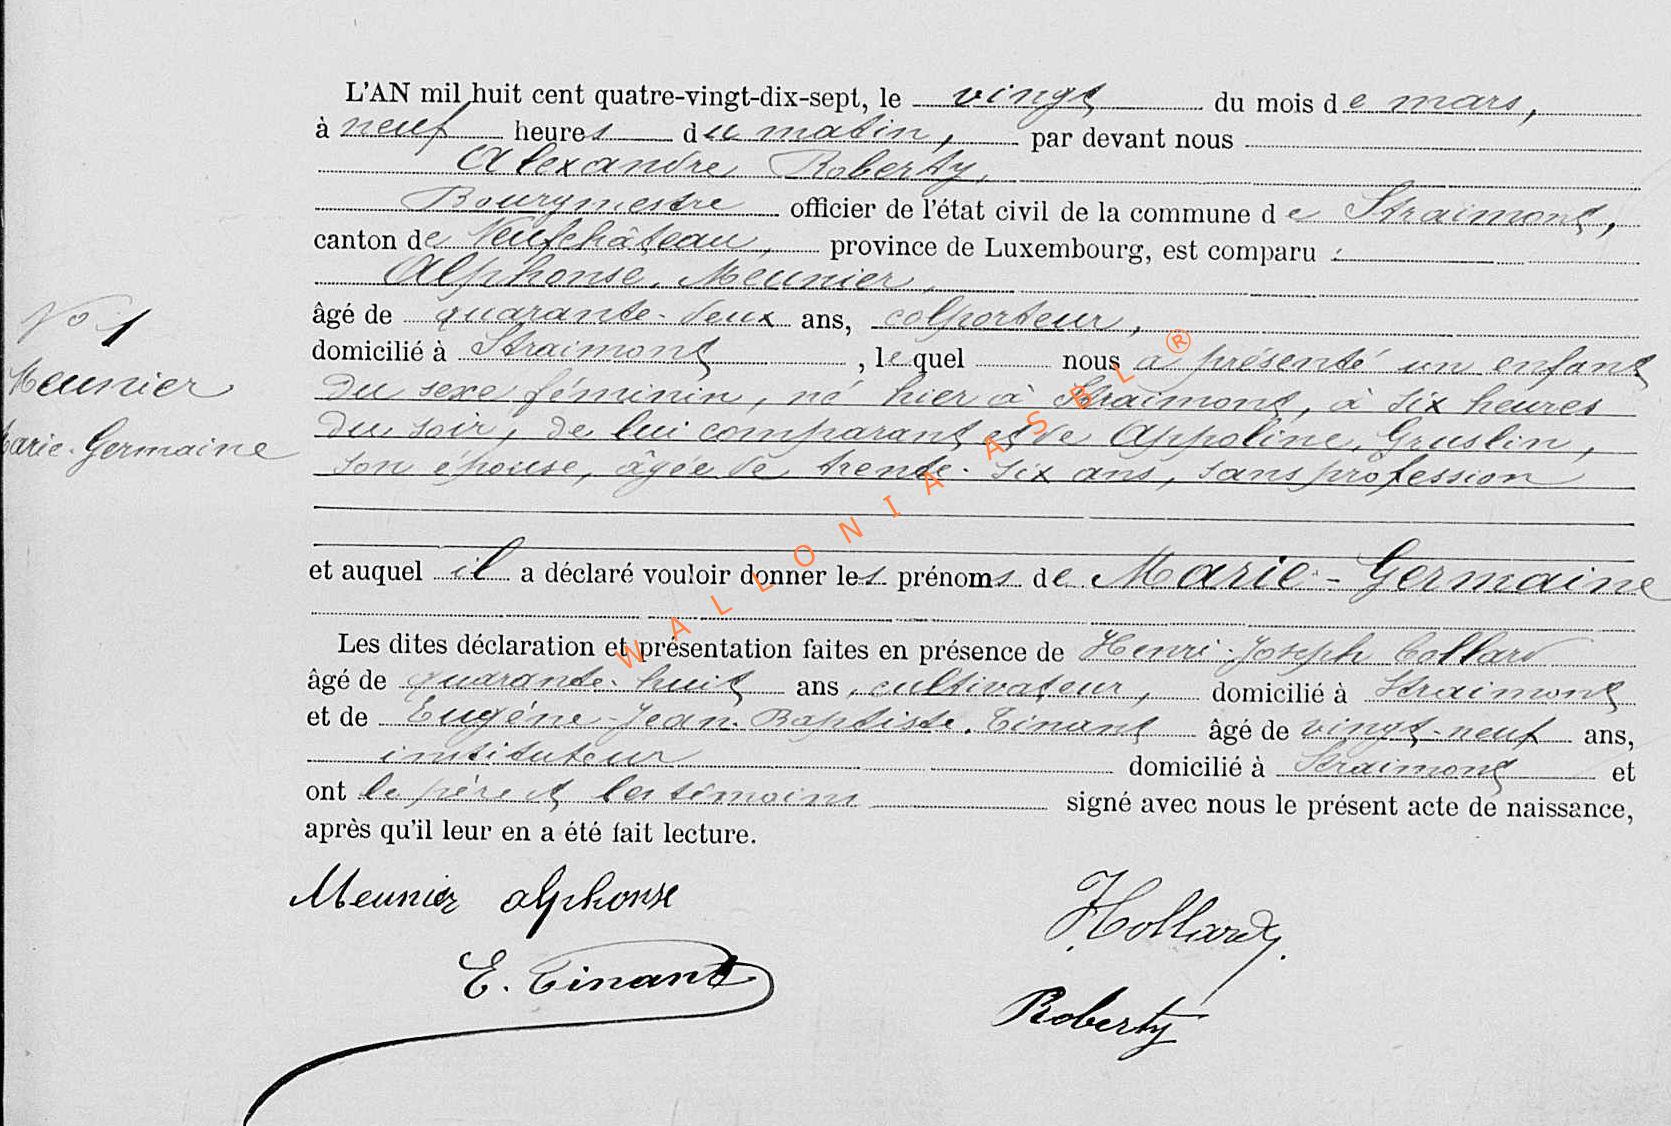 L'AN mil huit cent quatre-vingt-dix-sept, le vingt du mois de mars,
à neuf heures du matin, par devant nous
Alexandre Roberty,
Bourgmestre officier de l'état civil de la commune de Straimont,
canton de Neufchâteau, province de Luxembourg, est comparu :
Alphonse Meunier,
âgé de quarante-deux ans, colporteur,
domicilié à Straimont, lequel nous a présenté un enfant
du sexe féminin, né hier à Straimont, à six heures
du soir, de lui comparant et de Appoline Gruslin,
son épouse, âgée de trente-six ans, sans profession
No 1
Meunier
Marie-Germaine
et auquel il a déclaré vouloir donner les prénoms de Marie-Germaine
Les dites déclaration et présentation faites en présence de Henri-Joseph Collard
âgé de quarante-huit ans, cultivateur, domicilié à Straimont
et de Eugène-Jean-Baptiste Tinant âgé de vingt-neuf ans,
instituteur domicilié à Straimont et
ont le père et les témoins signé avec nous le présent acte de naissance,
après qu'il leur en a été fait lecture.
Meunier alphonse
HCollard
E. Tinant
Roberty
WALLONIA ASBL ®